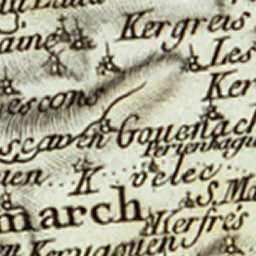 Kergreis
aine
Les
Ker
escons
scaven Gouenach
Perienhague
uen K velec
S. Ma
march
Kerfrés
en Kerugouen